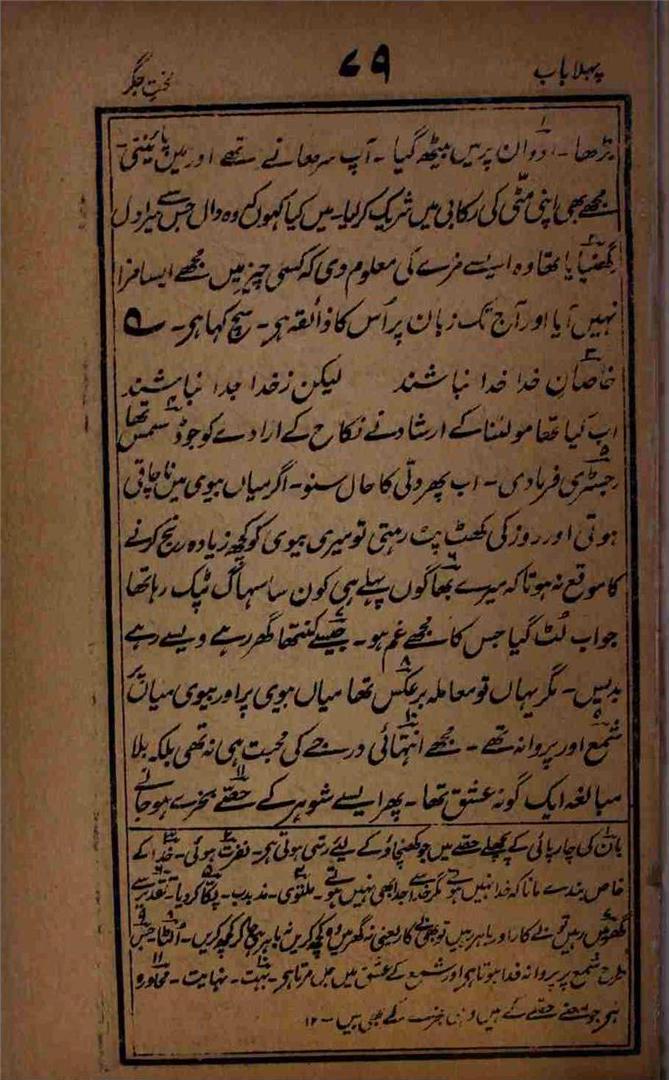 پہلا باب
۷۹
لختِ جگر
بڑھا۔ ادوان پر میں بیٹھ گیا۔ آپ سرھانے تھے اور میں پائینتی۔
مجھے بھی اپنی مٹی کی رکابی میں شریک کر لیا۔ میں کیا کہوں کہ وہ دال جس سے میرا دل
گھنیایا تھا وہ ایسے مزے کی معلوم دی کہ کسی چیز میں مجھے ایسا مزا
نہیں آیا اور آج تک زبان پر اُس کا ذائقہ ہو۔ سچ کہا ہو۔ ؎
خاصانِ خدا خدا نباشند لیکن زخدا جدا نباشند
اب کیا تھا مولٰنا کے ارشاد نے نکاح کے ارادے کو جو ڈسمس تھا
رجسٹری فرما دی۔ اب پھر دلّی کا حال سنو۔ اگر میاں بیوی میں ناچاقی
ہوتی اور روز کی کھٹ پٹ رہتی تو میری بیوی کو کچھ زیادہ رنج کرنے
کا موقع نہ ہوتا کہ میرے بھاگوں پہلے ہی کون سا سہاگ ٹپک رہا تھا
جو اب لُٹ گیا جس کا مجھے غم ہو۔ جیسے کنتھا گھر رہے ویسے رہے
بدیس۔ مگر یہاں تو معاملہ برعکس تھا میاں بیوی پر اور بیوی میاں پر
شمع اور پروانہ تھے۔ مجھے انتہائی درجے کی محبت ہی نہ تھی بلکہ بلا
مبالغہ ایک گونہ عشق تھا۔ پھر ایسے شوہر کے حصّے بخرے ہو جانے
بان کی چارپائی کے پچھلے حصّے میں جو کھنچاؤ کے لیئے رسّی ہوتی ہو۔ نفرت ہوئی۔ خدا کے
خاص بندے مانا کہ خدا نہیں ہوتے مگر خدا سے جدا بھی نہیں ہوتے۔ ملتوی۔ مذبذب۔ پکّا کر دیا۔ تقدیر سے
گھر میں رہیں تو بے کار اور باہر رہیں تو بے کار یعنی نہ گھر میں کچھ کریں نہ باہر کچھ کریں۔ اُلٹا۔ جس
طرح شمع پر پروانہ فدا ہوتا ہو اور شمع کے عشق میں جل مرتا ہو۔ بہت۔ نہایت۔ محاورہ
ہو جو معنے حصّے کے ہیں وہی بخرے کے بھی ہیں ۔ ۱۲